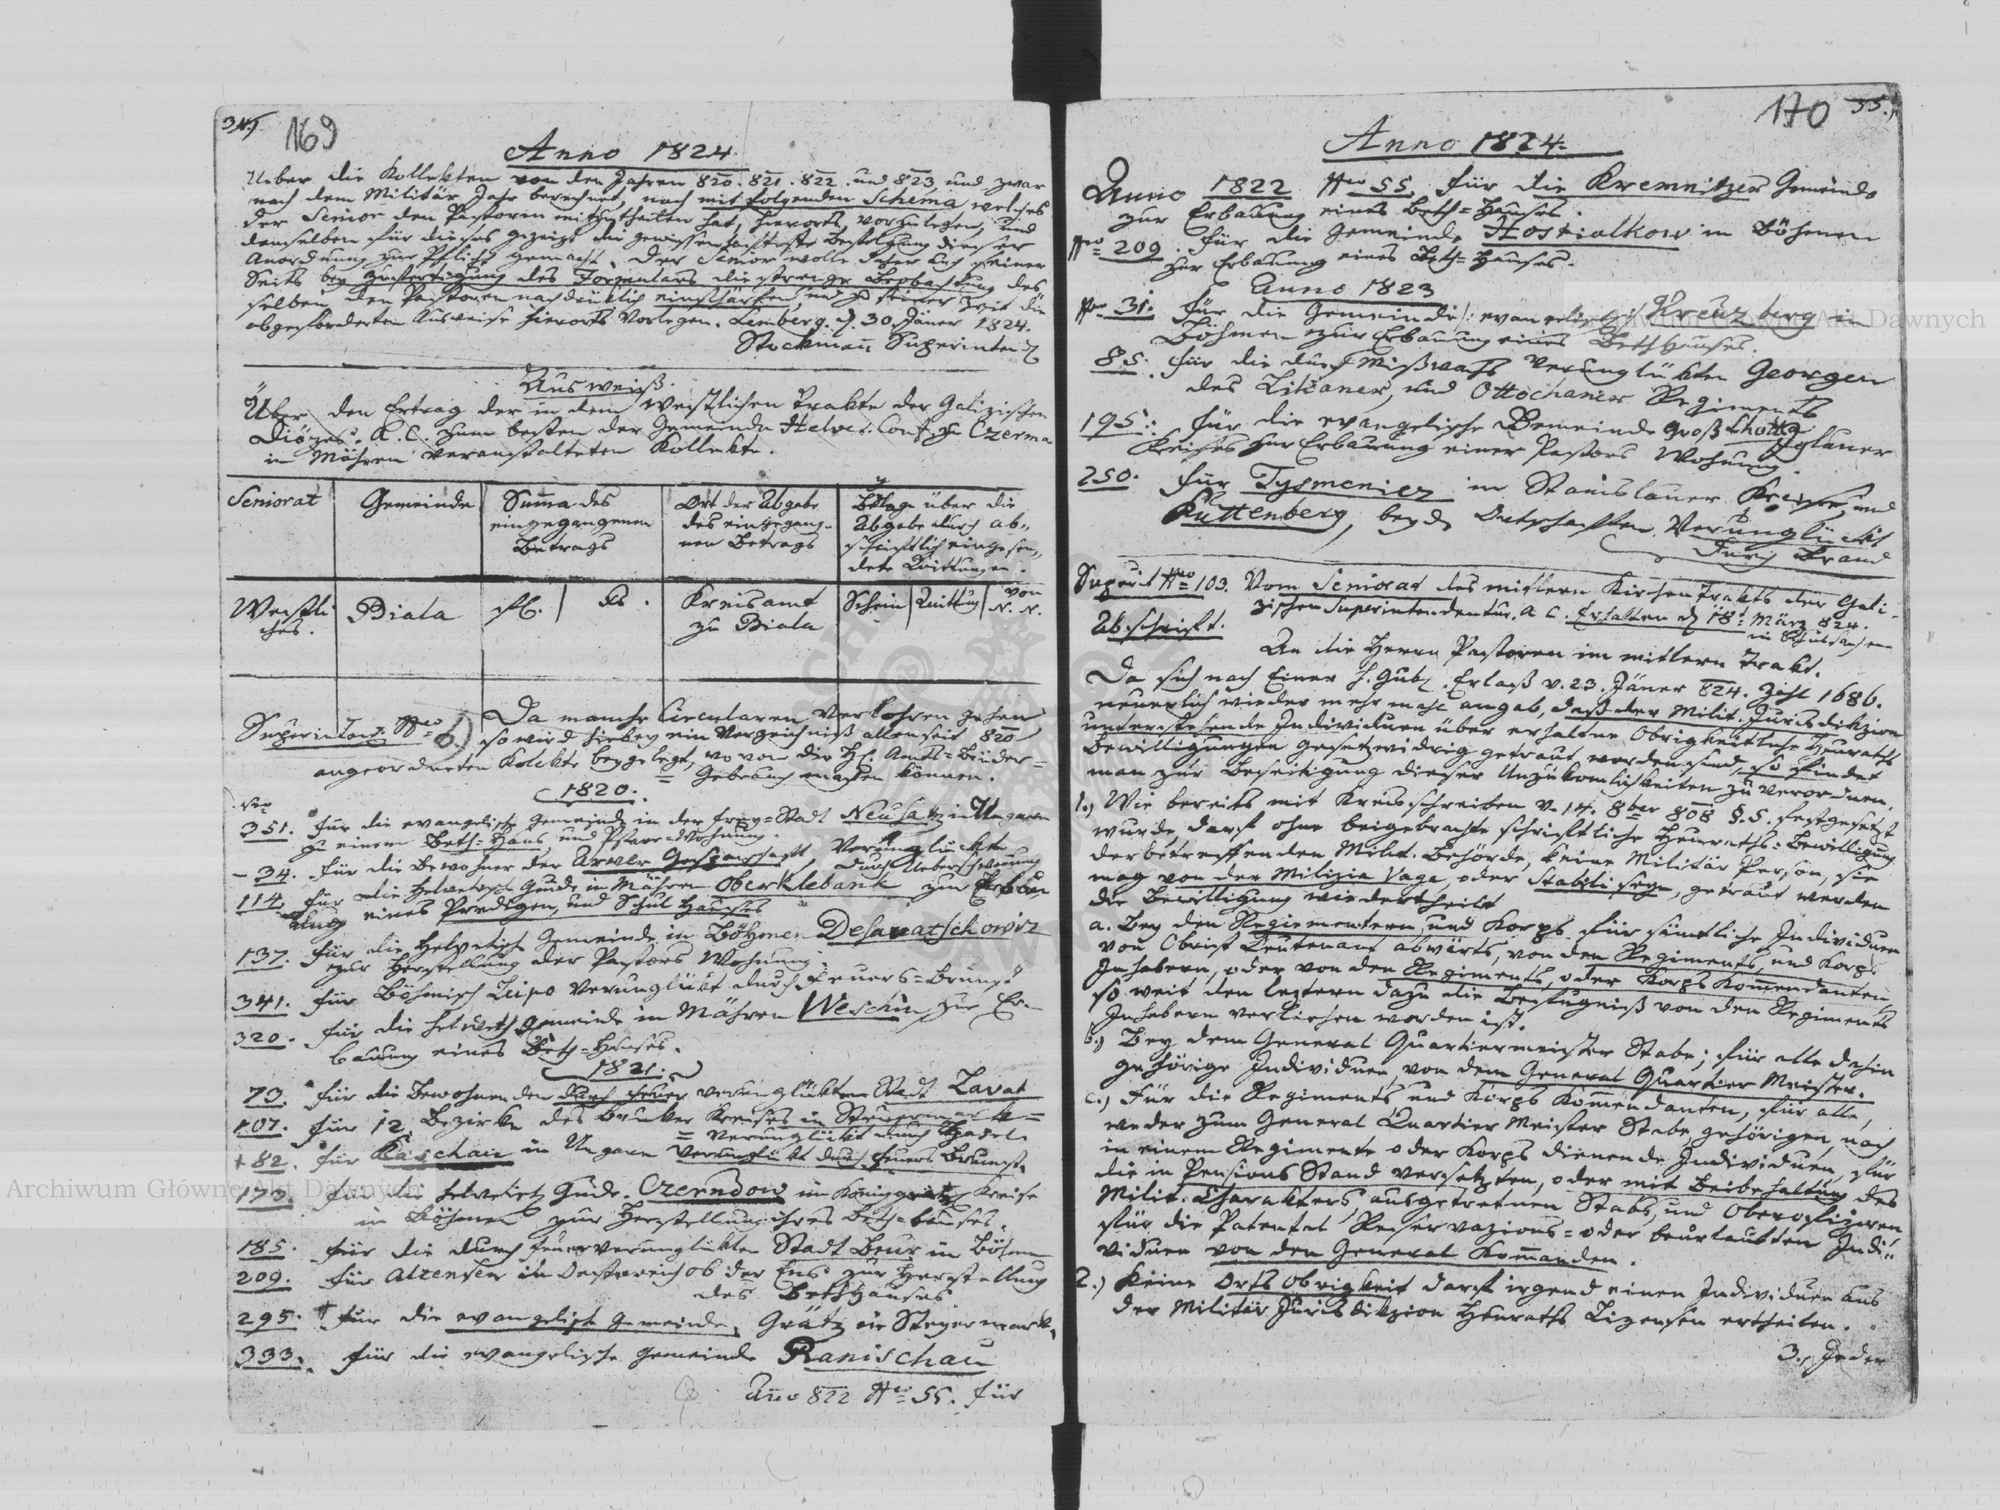 34.)
169
Anno 1824.
Ueber die Kollekten von den Jahren 820. 821. 822. und 823, und zwar
nach dem Militär Jahr berechnet, nach mit folgenden Schema welches
der Senior den Pastoren mitzutheilen hat, hierorts vorzulegen, und
denselben für dieses die gewissenhafteste Befolgung dieser
Anordnung zur Pflicht gemacht. Der Senior wolle daher auch seiner
Seits bey des Formulars die strenge Beobachtung des
selben den Pastoren nachdrüklich einschärfen, und zu seiner Zeit die
abgeforderten Ausweise hierorts Vorlegen. Lemberg. d. 30. Jäner 1824.
Stockmann Superinten
Ausweiß.
Über den Ertrag der in dem Westlichen Trakte der Galizischen
Diözes. A. C. zum besten der Gemeinde Helvet. Conf. zu Czerma
in Mähren veranstalteten Kollekte.
Seniorat
Gemeinde
Suma des
eingegangenen
Betrags
Ort der Abgabe
des eingegang-
nen Betrags
Belege über die
Abgabe durch ab-
schriftlich eingesen-
dete Quittungen.
Westli-
ches.
Biala
fl. | Kr.
Kreisamt
zu Biala
Schein | Quittung | von N. N.
Superintend. Nro 6)
Da manche Circularen Verlohren gehen
so wird hiebey ein Verzeichniß allen seit 820
angeordneten Kolekte beygelegt, wovon die H. Amts-Brüder
Gebrauch machen können.
1820.
Nro
351. für die evangelische Gemeinde in der frey-Stadt Neusatz in Ungarn
zu einem Beth-Haus, und Pfarr-Wohnung.
34. für die Bewohner der Arver Gespannschaft, Verunglückte
durch Ueberschwemmung
114. für die Helvetische Gmde in Mähren Oberklebank zur Erbau
ung eines Predigers, und Schul Hauses
137. für die Helvetische Gemeinde in Böhmen
zur Herstellung der Pastors Wohnung.
341. für Böhmisch Leipa Verunglükt durch Feuers-Brunst
320. für die helvetische Gemeinde in Mähren Weschin zur Er-
bauung eines Beth-Hauses.
1821.
73. für die Bewohner der durch Feuer verunglükten Stadt
107. für 12. Bezirke des Brucker Kreises in Steuermark
Verunglückt durch Hagel
82. für Kaschau in Ungarn Verunglükt durch Feuers Brunst.
173. für die helvetische Gmde. Czerndow im Königgrätzer Kreise
in Böhmen zur Herstellung ihres Beth-hauses.
185. für die durch Feuer verunglükte Stadt in Böhmen
209. für in Oesterreich ob der Ens zur Herstellung
des Bethhauses
295. für die evangelische Gemeinde, Grätz in Steyermark,
333. für die evangelische Gemeinde Ranischau
Ano 822 Nro 55. für
170
35.)
Anno 1824.
Anno 1822 Nro 55. für die Kremnitzer Gemeinde
zur Erbauung eines Beth-Hauses.
Nro 209. für die Gemeinde Hostialkow in Böhmen
zur Erbauung eines Beth-Hauses.
Anno 1823
Nro 31. Für die Gemeinde evangelisch Kreuzberg in
Böhmen zur Erbauung eines Bethhauses.
85. für die durch Mißwachs Verunglükten Georgen
des Likaner, und Ottochaner Regiments
195. für die evangelische Gemeinde Groß Lhotta Iglauer
Kreises zur Erbauung einer Pastors Wohnung.
250. für Tysmenicz im Stanislauer Kreise, und
Kuttenberg, beyde Ortschaften Verunglückt
durch Brand
Superit Nro 103. Vom Seniorat des mitlern Kirchen Trakts der Gali-
zischen Superintendentur. A. C. Erhalten d. 18t März 824.
in Schulsachen
Abschrift.
An die Herrn Pastoren im mitlern Trakt.
Da sich nach Einer h. Gub. Erlaß v. 23. Jäner 824. Zahl 1686.
neuerlich wieder mehrmahl ergab, daß der Milit. Jurisdikzion
unterstehende Individuen über erhaltene Obrigkeitliche Heuraths
Bewilligungen gesetzwidrig getraut worden sind, so findet
man zur Beseitigung dieser Unzukömlichkeiten zu verordnen.
1.) Wie bereits mit Kreisschreiben v. 14. 8ber 808 §. 5. festgesetzt
wurde, darf ohne beigebrachte schriftliche Heuraths-Bewilligung
der betreffenden Milit. Behörde, keine Militär Person, sie
mag von der Milizia Vaga, oder Stabili seyn, getraut werden
die Bewilligung wird ertheilt
a. Bey den Regimentern, und Korps für sämtliche Individuen
von Obrist Leutenant abwärts, von den Regiments, und Korps
Inhabern, oder von den Regiments, oder Korps Kommendanten,
so weit den letztern dazu die Befugniß von den Regiments
Inhabern verliehen worden ist.
b.) Bey dem General Quartiermeister Stabe; für alle dahin
gehörige Individuen, von dem General Quartier Meister.
c.) Für die Regiments und Korps Kommendanten, für alle,
weder zum General Quartier Meister Stabe gehörigen, noch
in einem Regimente oder Korps dienende Individuen, für
die in Pensions Stand versetzten, oder mit Beibehaltung des
Milit. Charakters, ausgetretenen Stabs, und Oberofizieren
für die Patental Reservazions- oder beurlaubten Indi-
viduen von den General Kommanden.
2.) Keine Orts Obrigkeit darf irgend einen Individuen aus
der Militär Jurisdikzion Heuraths Lizensen ertheilen.
3. Jeder
Archiwum Główne Akt Dawnych
Archiwum Główne Akt Dawnych